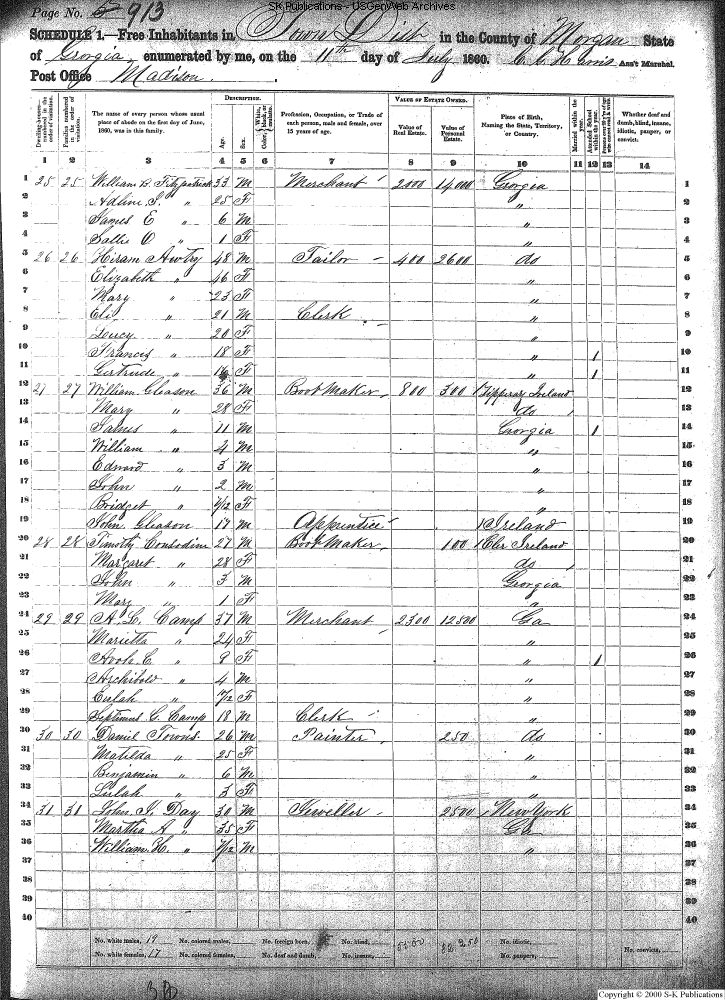 SK Publications - USGenWeb Archives
Page No. 5 913
SCHEDULE 1.—Free Inhabitants in Town Dist in the County of Morgan State
of Georgia enumerated by me, on the 11th day of July 1860. C. C. Harris Ass't Marshal.
Post Office Madison.
Dwelling-houses—numbered in the order of visitation.
Families numbered in the order of visitation.
The name of every person whose usual place of abode on the first day of June, 1860, was in this family.
DESCRIPTION.
Age.
Sex.
Color, White, black, or mulatto.
Profession, Occupation, or Trade of each person, male and female, over 15 years of age.
VALUE OF ESTATE OWNED.
Value of Real Estate.
Value of Personal Estate.
Place of Birth, Naming the State, Territory, or Country.
Married within the year.
Attended School within the year.
Whether deaf and dumb, blind, insane, idiotic, pauper, or convict.
1 2 3 4 5 6 7 8 9 10 11 12 13 14
1 25 25 William B. Fitzpatrick 33 M Merchant 2000 14000 Georgia 1
2 Adline S. " 25 F " 2
3 James E " 6 M " 3
4 Sallie O " 1 F " 4
5 26 26 Hiram Awtry 48 M Tailor 400 2600 do 5
6 Elizabeth " 46 F " 6
7 Mary " 23 F " 7
8 Eli " 21 M Clerk " 8
9 Lucy " 20 F " 9
10 Frances " 18 F " 1 10
11 Gertrude " 16 F " 1 11
12 27 27 William Gleason 36 M Boot Maker 800 300 Tipperary Ireland 12
13 Mary " 28 F do 13
14 James " 11 M Georgia 1 14
15 William " 4 M " 15
16 Edward " 3 M " 16
17 John " 2 M " 17
18 Bridget " /12 F " 18
19 John Gleason 17 M Apprentice Ireland 19
20 28 28 Timothy Consodine 27 M Boot Maker 100 Cler Ireland 20
21 Margaret " 28 F do 21
22 John " 3 M Georgia 22
23 Mary " 1 F " 23
24 29 29 A. L. Camp 37 M Merchant 2300 12500 Ga 24
25 Marietta " 24 F " 25
26 C. " 9 F " 1 26
27 Archibold " 4 M " 27
28 Eulah " 7/12 F " 28
29 Septimus G. Camp 18 M Clerk " 29
30 30 30 Daniel Towns 26 M Painter 250 do 30
31 Matilda " 25 F " 31
32 Benjamin " 6 M " 32
33 Lulah " 3 F " 33
34 31 31 John I. Day 30 M Jeweller 2500 New York 34
35 Martha A " 35 F Ga 35
36 William H. " /12 M " 36
37 37
38 38
39 39
40 40
No. white males, 19 No. colored males, No. foreign born, No. blind, 5500 No. idiotic,
No. white females, 17 No. colored females, No. deaf and dumb, No. insane, No. paupers, No. convicts,
Copyright © 2000 S-K Publications